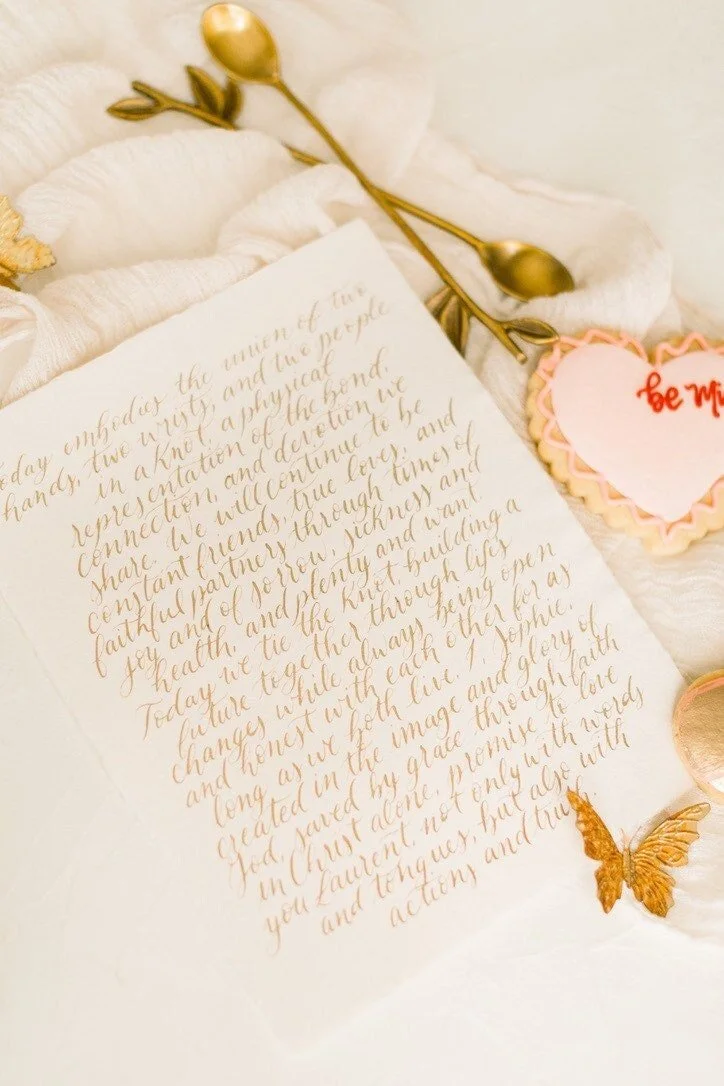 Today embodies the union of two
hands, two wrists, and two people
in a knot, a physical
representation of the bond,
connection, and devotion we
share. We will continue to be
constant friends, true loves, and
faithful partners through times of
joy and of sorrow, sickness and
health, and plenty and want.
Today we tie the knot, building a
future together through lifes
changes while always being open
and honest with each other for as
long as we both live. I, Sophie,
created in the image and glory of
God, saved by grace through faith
in Christ alone, promise to love
you Laurent, not only with words
and tongues, but also with
actions and truth.
be Mi